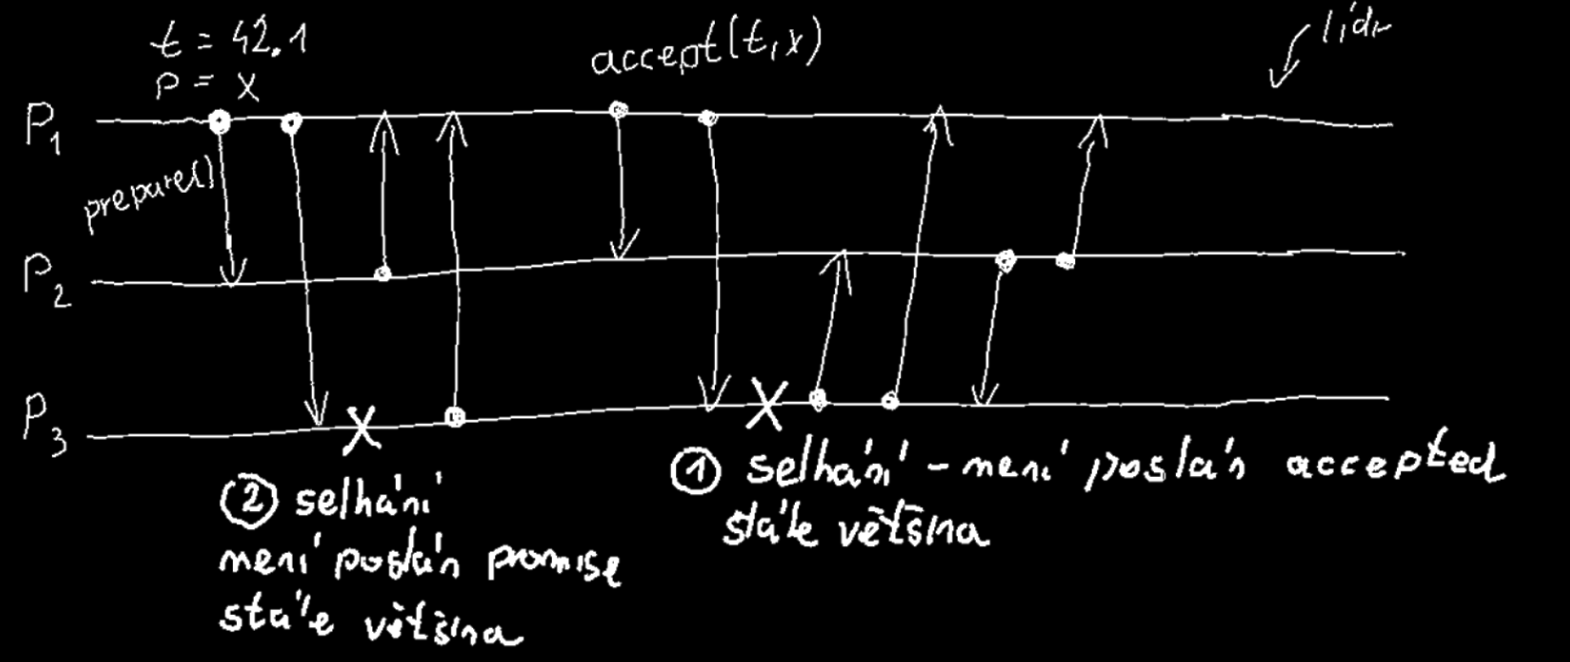 t = 42.1
p = x
accept(t,x)
lídr
P1
prepare()
P2
P3
① selhání - není poslán accepted
stále většina
② selhání
není poslán promise
stále většina